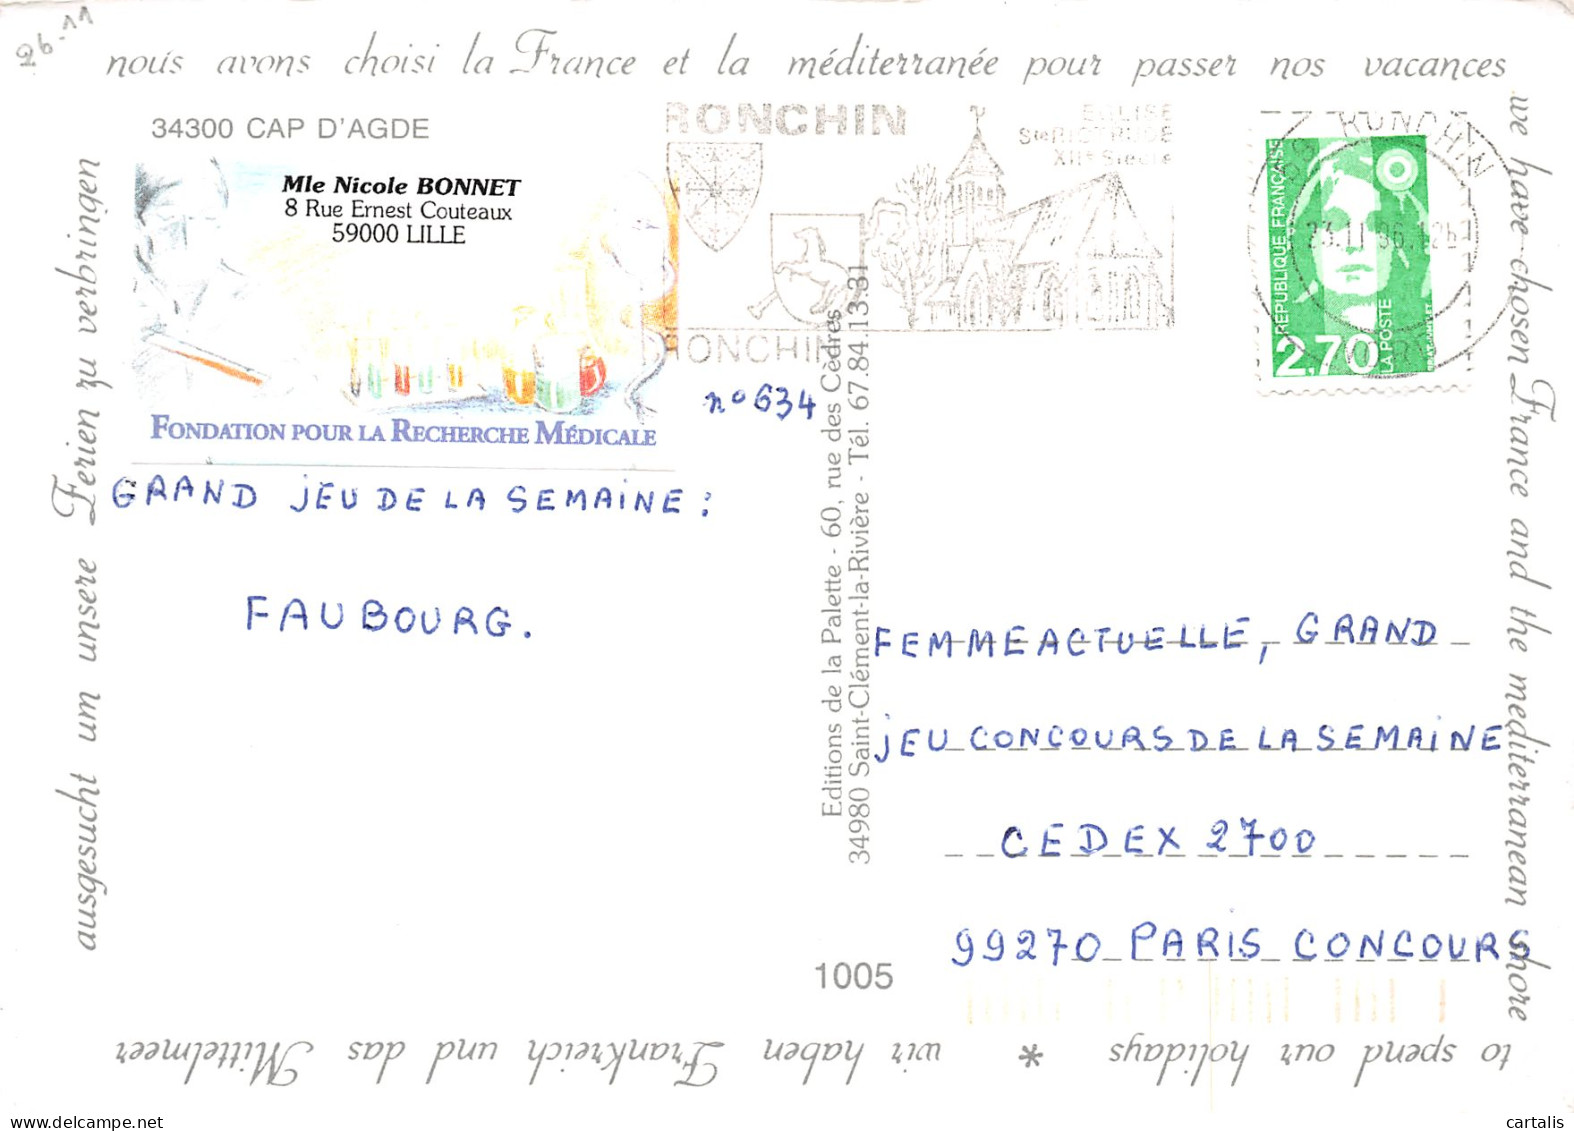 26-11
nous avons choisi la France et la méditerranée pour passer nos vacances
34300 CAP D'AGDE
Mle Nicole BONNET
8 Rue Ernest Couteaux
59000 LILLE
FONDATION POUR LA RECHERCHE MÉDICALE
RONCHIN
EGLISE
Ste RICTRUDE
XIIe Siècle
RONCHIN
59 RONCHIN
RÉPUBLIQUE FRANÇAISE
2,70
LA POSTE
n° 634
GRAND JEU DE LA SEMAINE :
FAUBOURG.
Editions de la Palette - 60, rue des Cèdres
34980 Saint-Clément-la-Rivière - Tél. 67.84.13.31
FEMME ACTUELLE, GRAND
JEU CONCOURS DE LA SEMAINE
CEDEX 2700
99270 PARIS CONCOURS
1005
we have chosen France and the mediterranean shore
to spend our holidays * wir haben Frankreich und das Mittelmeer
ausgesucht um unsere Ferien zu verbringen
cartalis